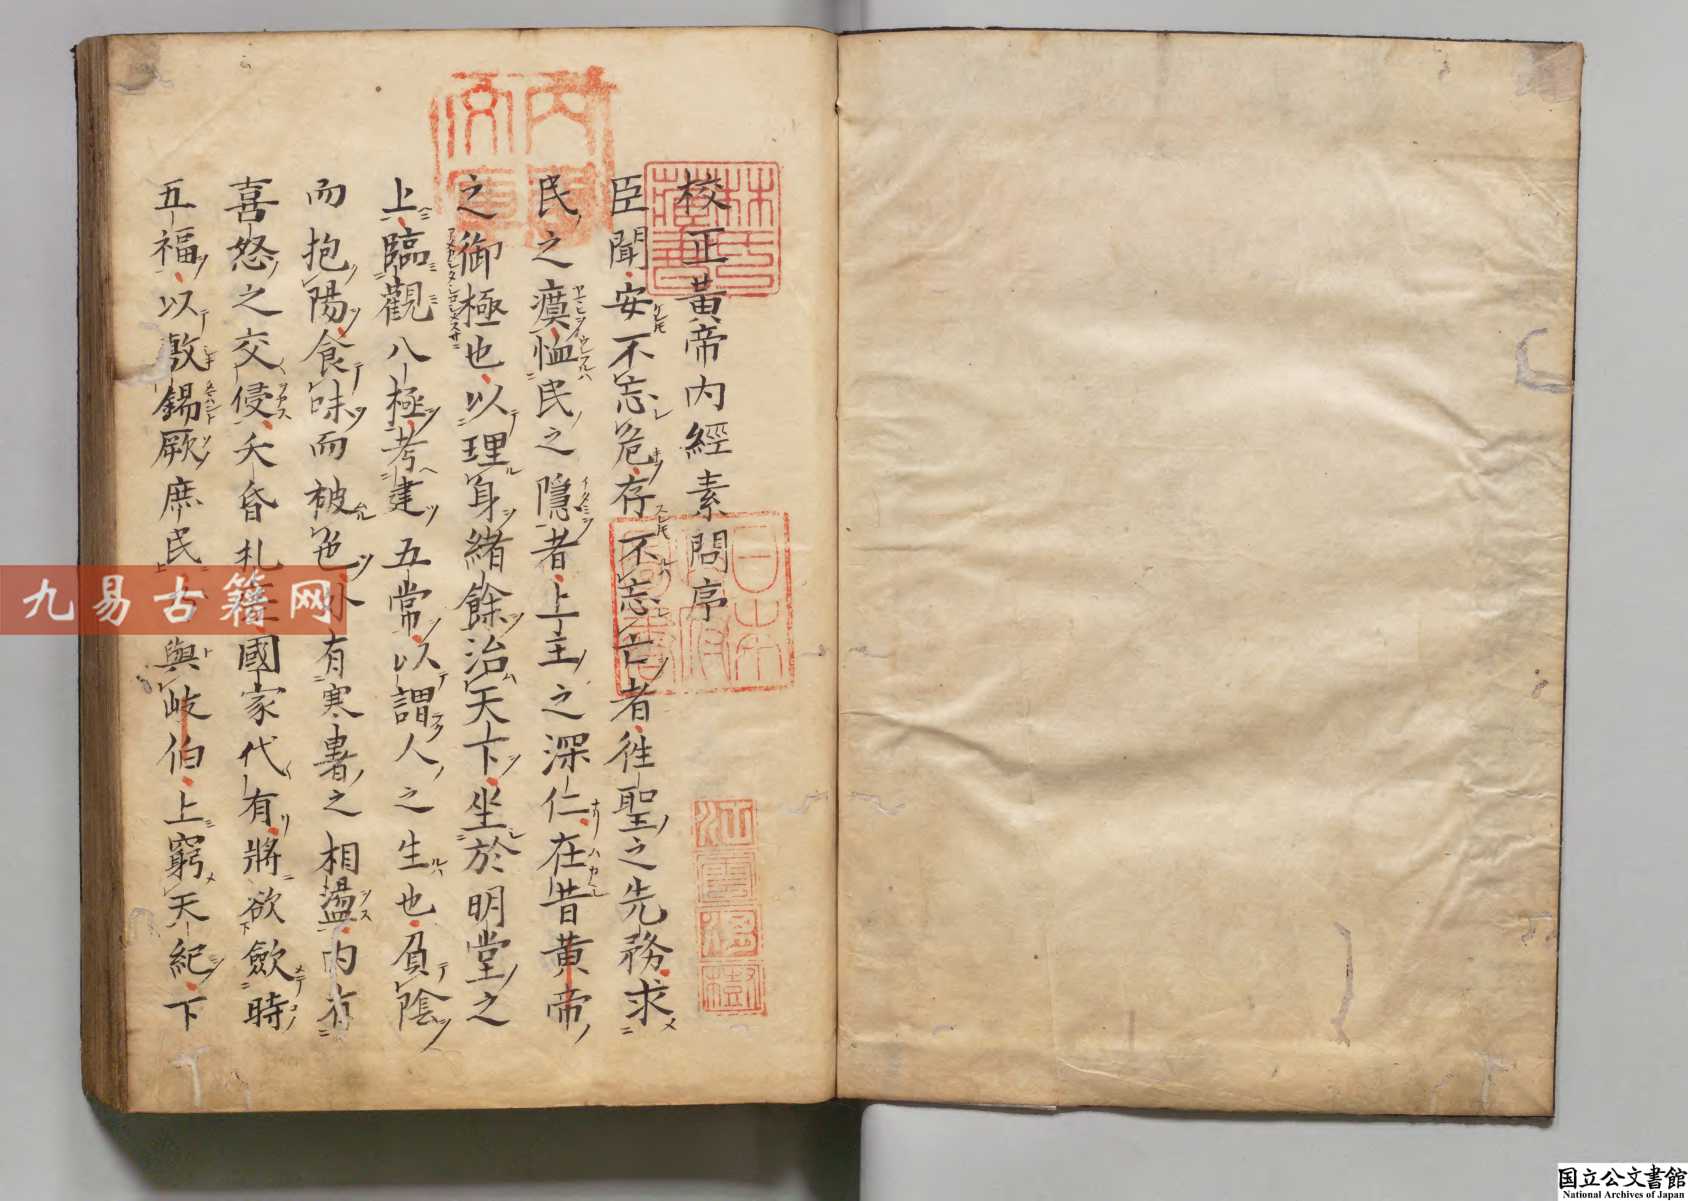 校正黃帝內經素問序
臣聞安不忘危存不忘亡者徃聖之先務求
民之瘼恤民之隱者上主之深仁在昔黃帝
之御極也以理身緒餘治天下坐於明堂之
上臨觀八極考建五常以謂人之生也負陰
而抱陽食味而被色外有寒暑之相盪內有
喜怒之交侵夭昏札瘥國家代有將欲斂時
五福以敷錫厥庶民乃與岐伯上窮天紀下
林氏藏書
日本政府圖書
江雲渭樹
九易古籍网
国立公文書館
National Archives of Japan